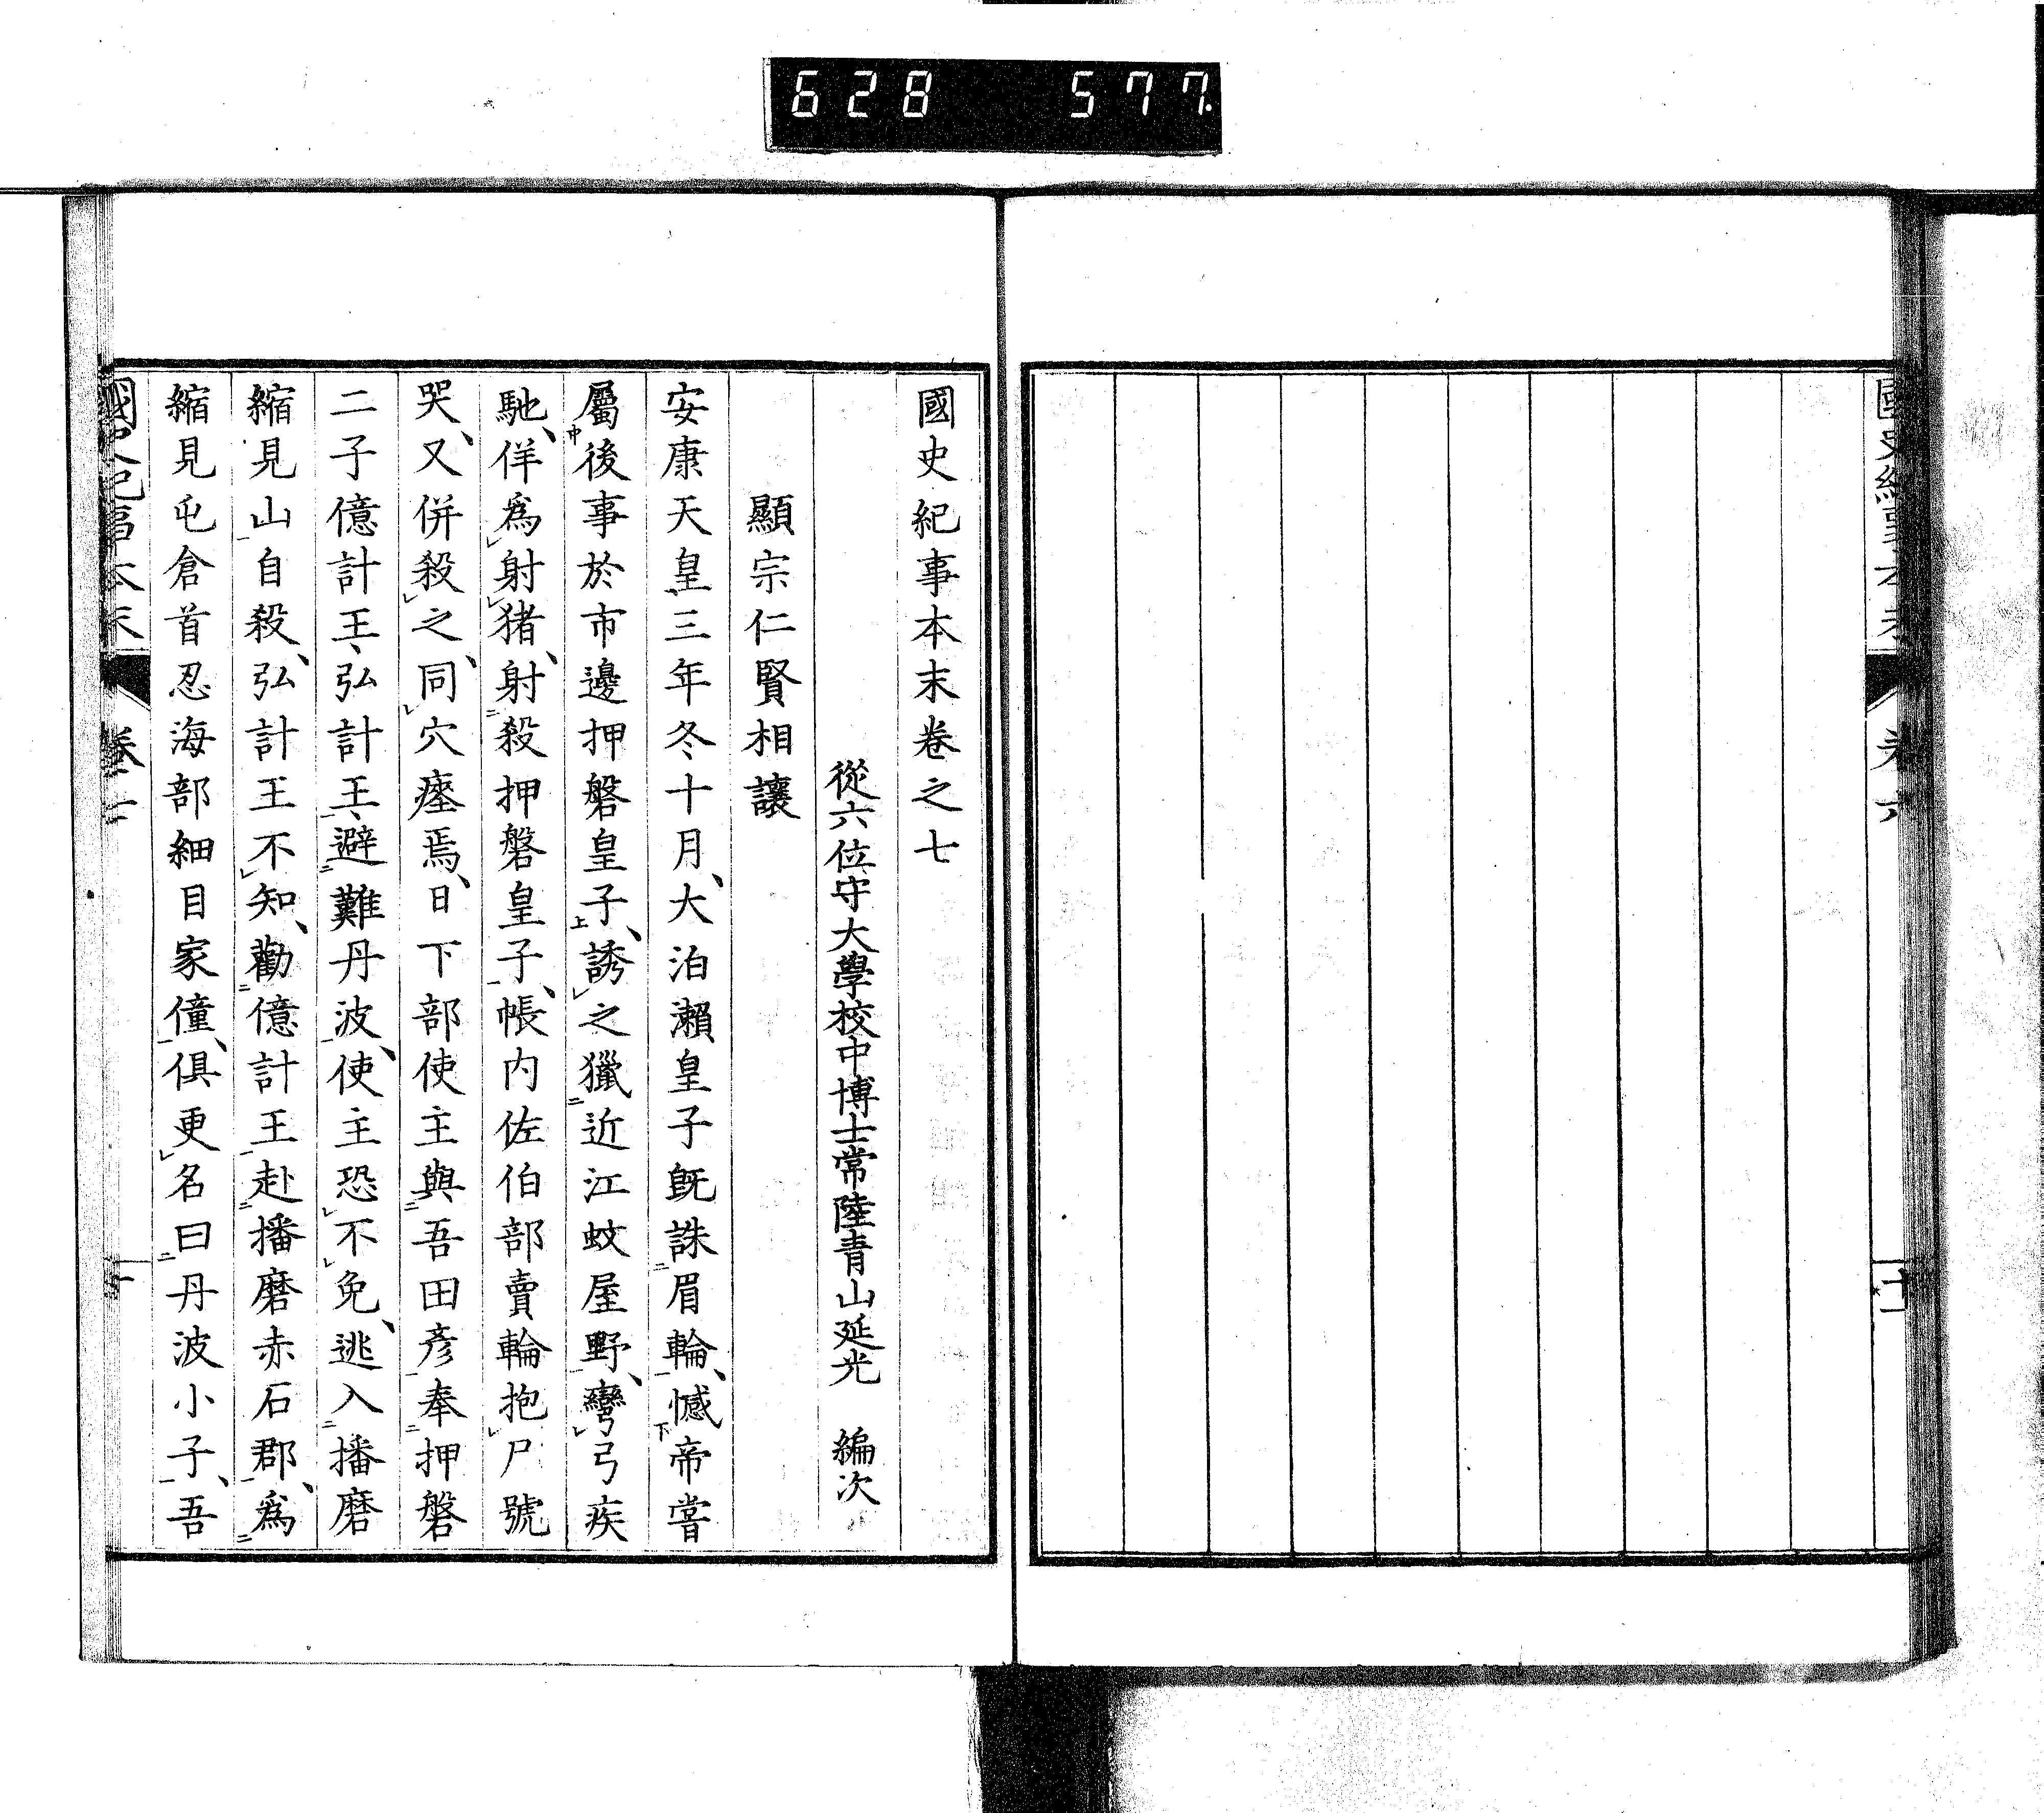 628 577
國史紀事本末卷之七
從六位守大學校中博士常陸青山延光 編次
顯宗仁賢相讓
安康天皇三年冬十月、大泊瀨皇子旣誅眉輪、憾帝嘗
屬後事於市邊押磐皇子、誘之獵近江蚊屋野、彎弓疾
馳、佯爲射猪、射殺押磐皇子、帳内佐伯部賣輪抱尸號
哭、又併殺之、同穴瘞焉、日下部使主與吾田彥奉押磐
二子億計王、弘計王、避難丹波、使主恐不免、逃入播磨
縮見山自殺、弘計王不知、勸億計王赴播磨赤石郡、爲
縮見屯倉首忍海部細目家僮、俱更名曰丹波小子、吾